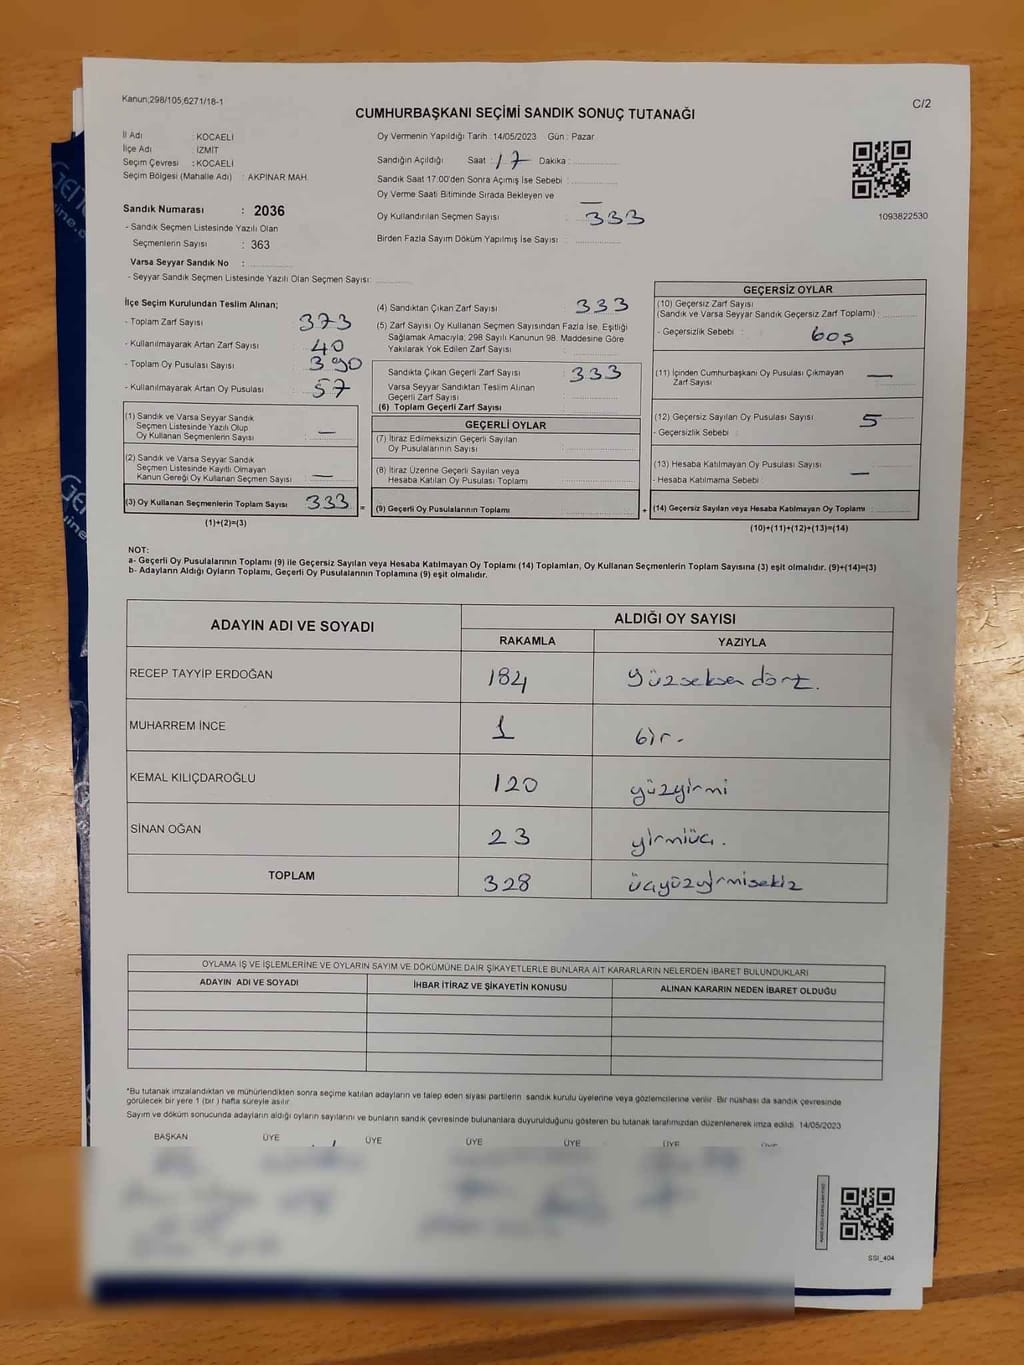 Kanun;298/105,6271/18-1
C/2
CUMHURBAŞKANI SEÇİMİ SANDIK SONUÇ TUTANAĞI
İl Adı : KOCAELİ
İlçe Adı : İZMİT
Seçim Çevresi : KOCAELİ
Seçim Bölgesi (Mahalle Adı) : AKPINAR MAH.
Sandık Numarası : 2036
- Sandık Seçmen Listesinde Yazılı Olan
Seçmenlerin Sayısı : 363
Varsa Seyyar Sandık No :
- Seyyar Sandık Seçmen Listesinde Yazılı Olan Seçmen Sayısı:
Oy Vermenin Yapıldığı Tarih : 14/05/2023 Gün : Pazar
Sandığın Açıldığı Saat : 17 Dakika :
Sandık Saat 17:00'den Sonra Açımış İse Sebebi :
Oy Verme Saati Bitiminde Sırada Bekleyen ve —
Oy Kullandırılan Seçmen Sayısı : 333
Birden Fazla Sayım Döküm Yapılmış İse Sayısı :
1093822530
İlçe Seçim Kurulundan Teslim Alınan;
- Toplam Zarf Sayısı 373
- Kullanılmayarak Artan Zarf Sayısı 40
- Toplam Oy Pusulası Sayısı 390
- Kullanılmayarak Artan Oy Pusulası 57
(1) Sandık ve Varsa Seyyar Sandık
Seçmen Listesinde Yazılı Olup
Oy Kullanan Seçmenlerin Sayısı —
(2) Sandık ve Varsa Seyyar Sandık
Seçmen Listesinde Kayıtlı Olmayan
Kanun Gereği Oy Kullanan Seçmen Sayısı —
(3) Oy Kullanan Seçmenlerin Toplam Sayısı 333
(1)+(2)=(3)
=
(4) Sandıktan Çıkan Zarf Sayısı 333
(5) Zarf Sayısı Oy Kullanan Seçmen Sayısından Fazla İse, Eşitliği
Sağlamak Amacıyla; 298 Sayılı Kanunun 98. Maddesine Göre
Yakılarak Yok Edilen Zarf Sayısı :
Sandıkta Çıkan Geçerli Zarf Sayısı : 333
Varsa Seyyar Sandıktan Teslim Alınan
Geçerli Zarf Sayısı :
(6) Toplam Geçerli Zarf Sayısı
GEÇERLİ OYLAR
(7) İtiraz Edilmeksizin Geçerli Sayılan
Oy Pusulalarının Sayısı :
(8) İtiraz Üzerine Geçerli Sayılan veya
Hesaba Katılan Oy Pusulası Toplamı :
(9) Geçerli Oy Pusulalarının Toplamı
+
GEÇERSİZ OYLAR
(10) Geçersiz Zarf Sayısı
(Sandık ve Varsa Seyyar Sandık Geçersiz Zarf Toplamı) :
- Geçersizlik Sebebi : boş
(11) İçinden Cumhurbaşkanı Oy Pusulası Çıkmayan
Zarf Sayısı —
(12) Geçersiz Sayılan Oy Pusulası Sayısı 5
- Geçersizlik Sebebi :
(13) Hesaba Katılmayan Oy Pusulası Sayısı —
- Hesaba Katılmama Sebebi :
(14) Geçersiz Sayılan veya Hesaba Katılmayan Oy Toplamı
(10)+(11)+(12)+(13)=(14)
NOT:
a- Geçerli Oy Pusulalarının Toplamı (9) ile Geçersiz Sayılan veya Hesaba Katılmayan Oy Toplamı (14) Toplamları, Oy Kullanan Seçmenlerin Toplam Sayısına (3) eşit olmalıdır. (9)+(14)=(3)
b- Adayların Aldığı Oyların Toplamı, Geçerli Oy Pusulalarının Toplamına (9) eşit olmalıdır.
ADAYIN ADI VE SOYADI ALDIĞI OY SAYISI
RAKAMLA YAZIYLA
RECEP TAYYİP ERDOĞAN 184 yüzseksen dört.
MUHARREM İNCE 1 bir.
KEMAL KILIÇDAROĞLU 120 yüzyirmi
SİNAN OĞAN 23 yirmiüç.
TOPLAM 328 üçyüzyirmisekiz
OYLAMA İŞ VE İŞLEMLERİNE VE OYLARIN SAYIM VE DÖKÜMÜNE DAİR ŞİKAYETLERLE BUNLARA AİT KARARLARIN NELERDEN İBARET BULUNDUKLARI
ADAYIN ADI VE SOYADI İHBAR İTİRAZ VE ŞİKAYETİN KONUSU ALINAN KARARIN NEDEN İBARET OLDUĞU
*Bu tutanak imzalandıktan ve mühürlendikten sonra seçime katılan adayların ve talep eden siyasi partilerin sandık kurulu üyelerine veya gözlemcilerine verilir. Bir nüshası da sandık çevresinde
görülecek bir yere 1 (bir ) hafta süreyle asılır.
Sayım ve döküm sonucunda adayların aldığı oyların sayılarını ve bunların sandık çevresinde bulunanlara duyurulduğunu gösteren bu tutanak tarafımızdan düzenlenerek imza edildi. 14/05/2023
BAŞKAN ÜYE ÜYE ÜYE ÜYE ÜYE ÜYE
SSI_404